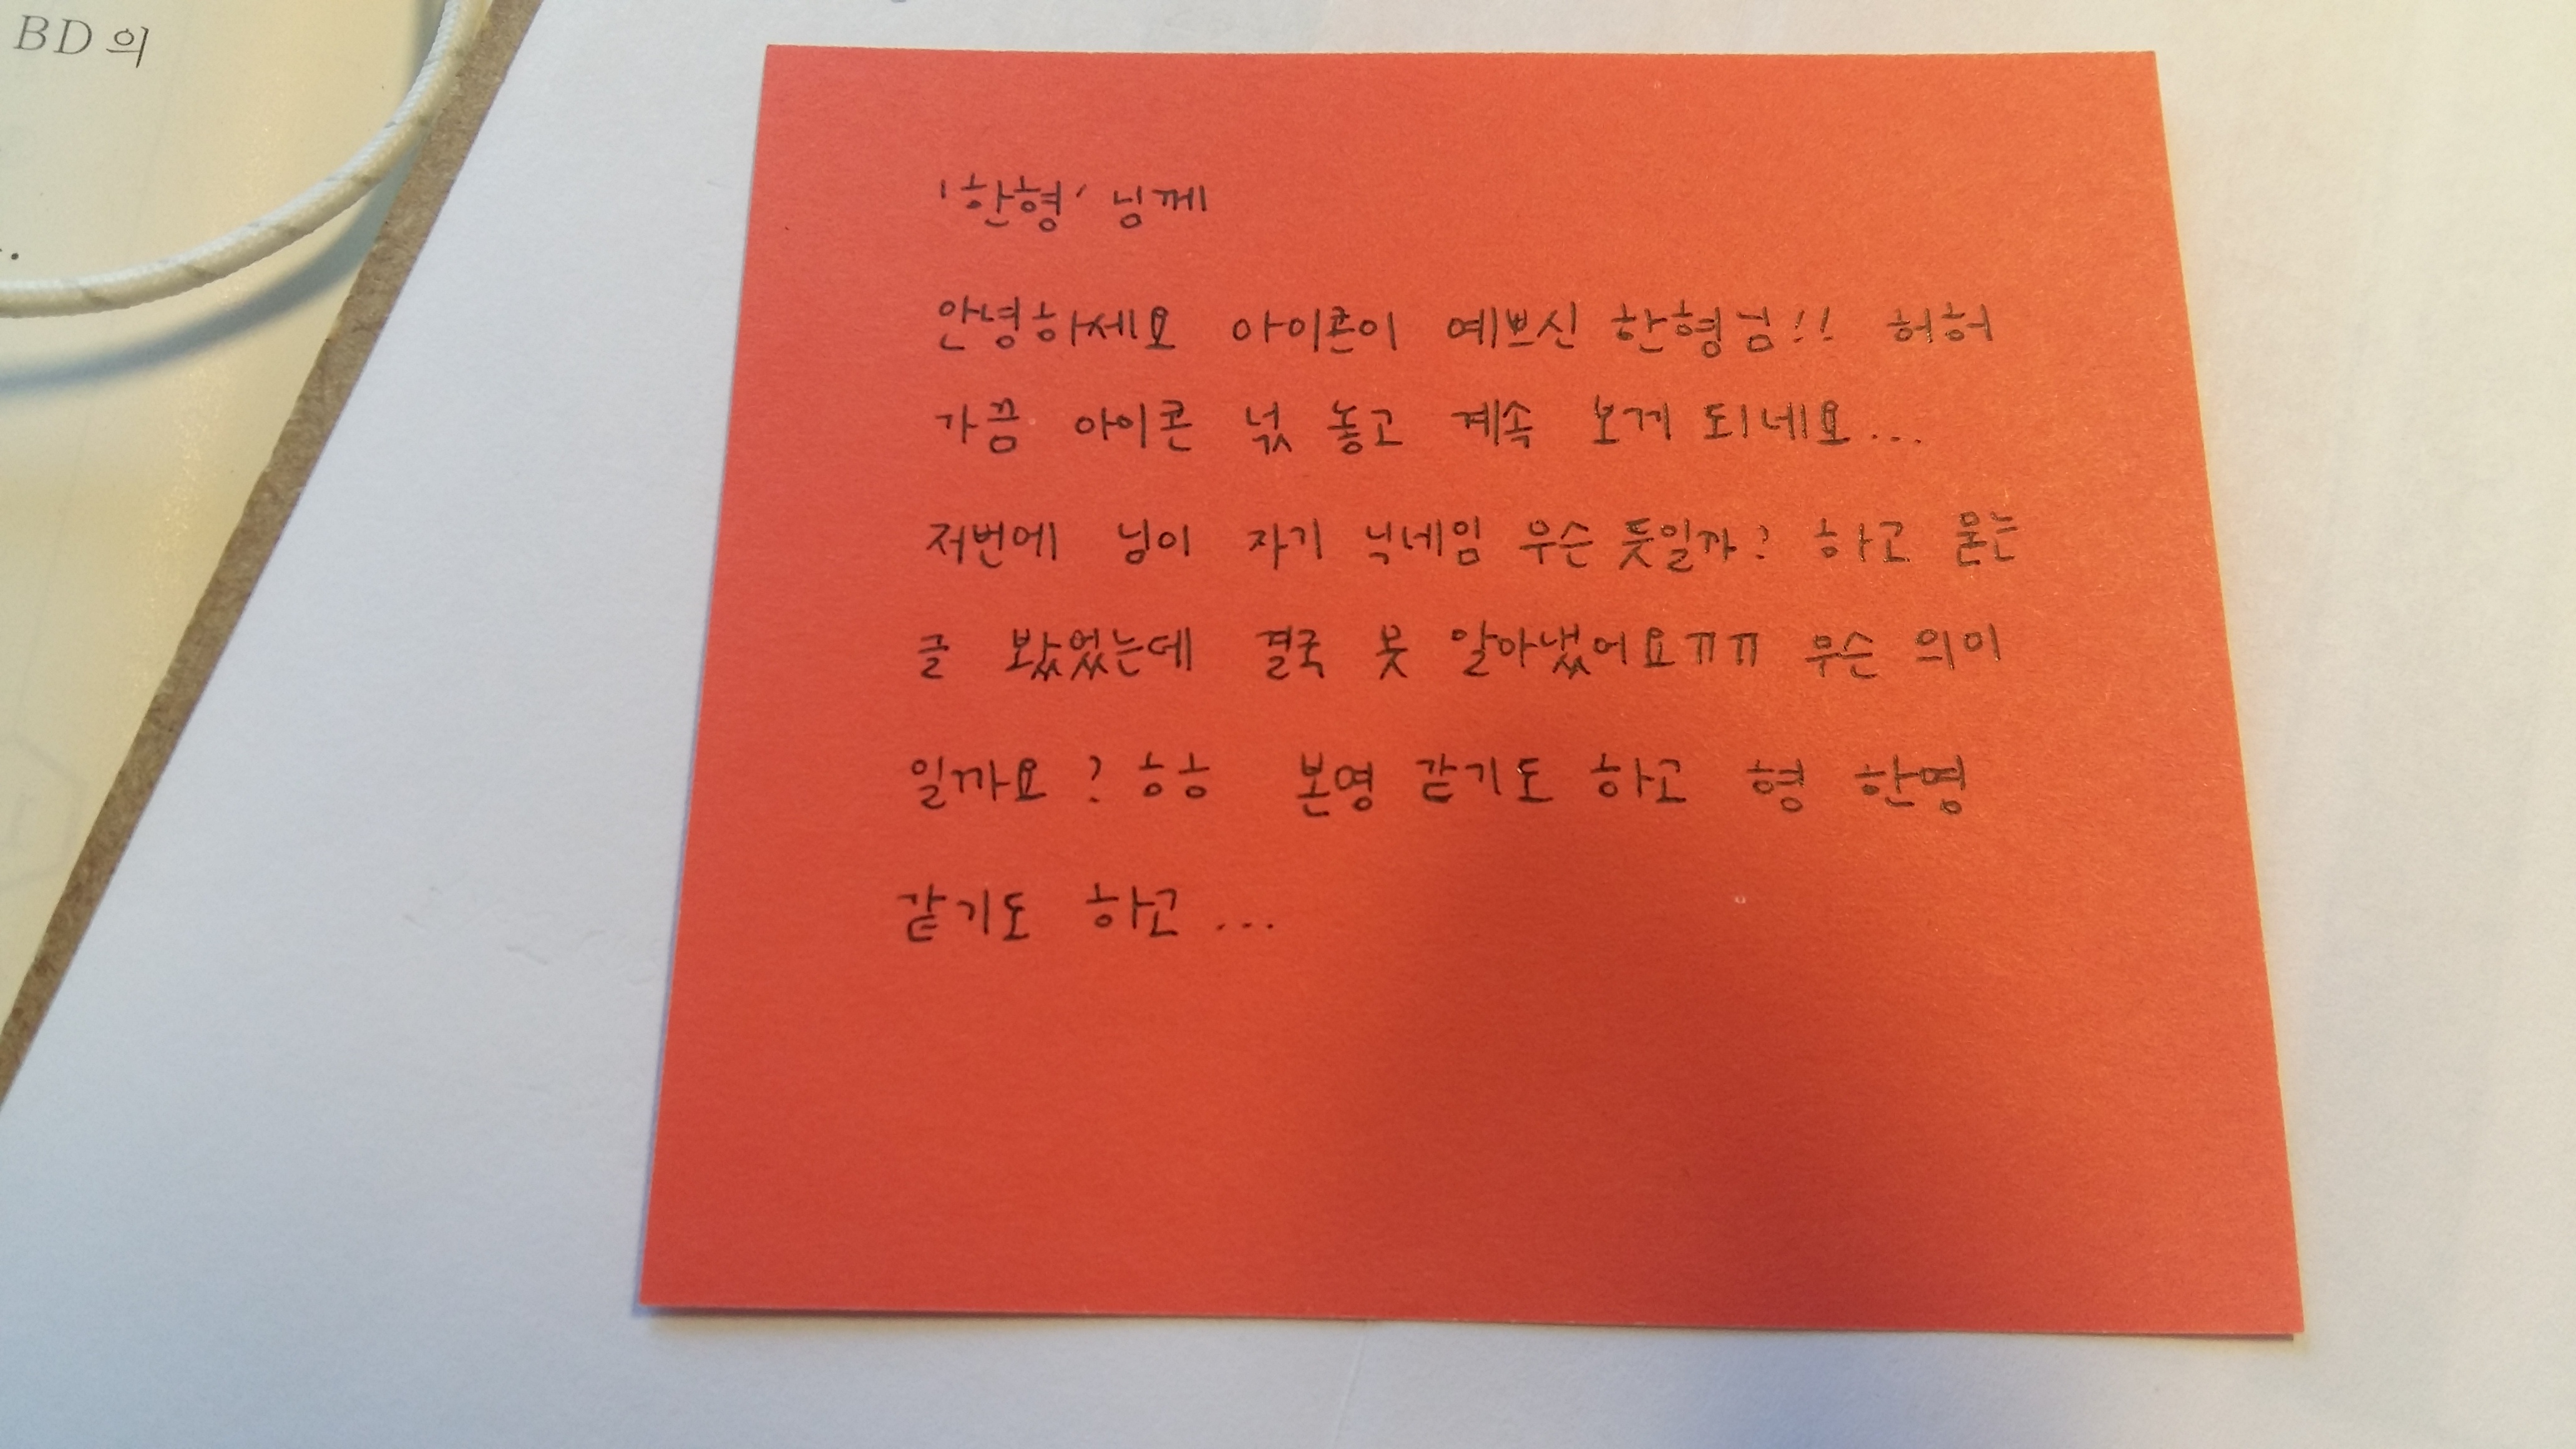 BD의
'한형' 님께
안녕하세요 아이콘이 예쁘신 한형님!! 허허
가끔 아이콘 넋 놓고 계속 보게 되네요...
저번에 님이 자기 닉네임 무슨 뜻일까? 하고 묻는
글 봤었는데 결국 못 알아냈어요ㅠㅠ 무슨 의미
일까요? ㅎㅎ 본영 같기도 하고 형 한영
같기도 하고...